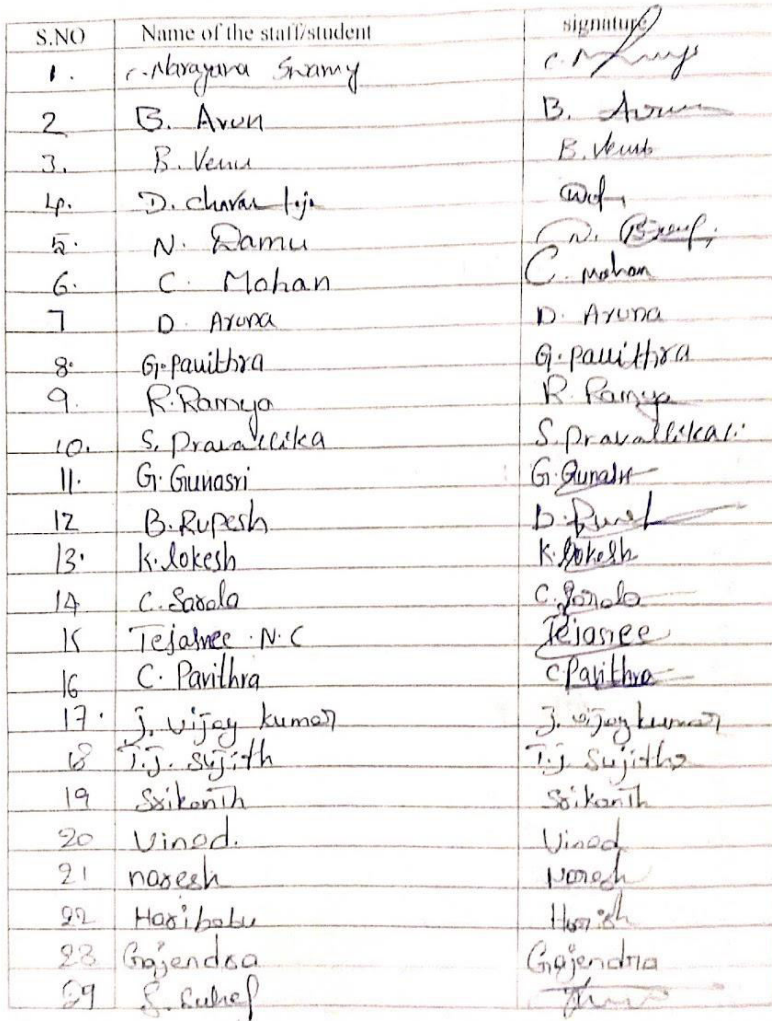 S.NO Name of the staff/student signature
1. C. Narayana Swamy C. N
2 B. Arun B. Arun
3. B. Venu B. Venu
4. D. Charan
5. N. Damu N.
6. C. Mohan C. Mohan
7 D. Aruna D. Aruna
8. G. Pavithra G. Pavithra
9. R. Ramya R. Ramya
10. S. Pravallika S. Pravallika
11. G. Gunasri G. Gunasri
12 B. Rupesh
13. K. lokesh K. lokesh
14 C. Sarala C. Sarala
15 Tejasree N.C Tejasree
16 C. Pavithra C Pavithra
17. J. vijay kumar J. vijay kumar
18 T.J. Sujith T.J Sujitha
19 Srikanth Srikanth
20 Vinod. Vinod
21 naresh Naresh
22 Haribabu Harish
23 Gajendra Gajendra
29